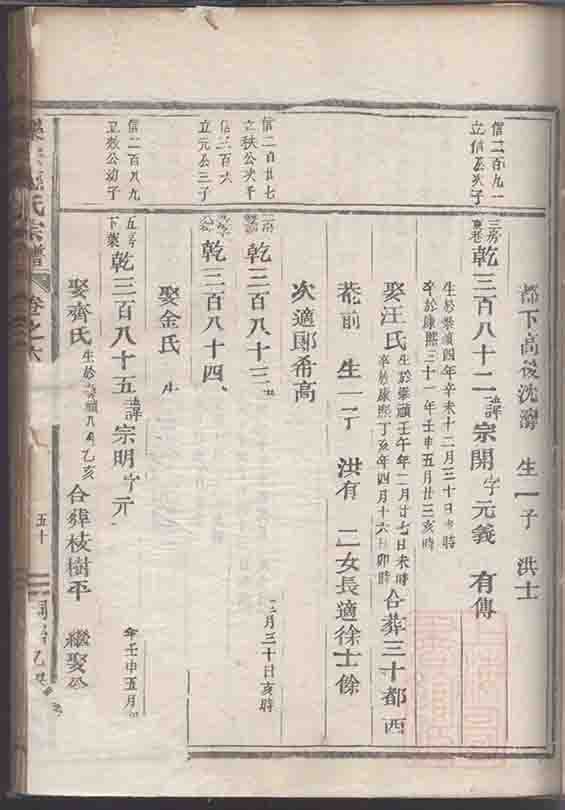 都下高後沈灣 生一子 洪士
信二百九一
立信公次子
三房
乾三百八十二 諱宗開 字元義 有傳
生於崇禎四年辛未十二月三十日 時
卒於康熙三十一年壬申五月廿三亥時
娶汪氏 生於崇禎壬午年二月廿七日未時
卒於康熙丁亥年四月十六日卯時 合葬三十都西
菴前 生一子 洪有 二女長適徐士餘
次適鄭希高
信二百廿七
立秩公次子
乾三百八十三
二月三十日亥時
信二百六
立元公三子
乾三百八十四
娶金氏 生
信二百八九
立敖公幼子
五房
下葉
乾三百八十五 諱宗明 字元
年壬申五月
娶齊氏 生於崇禎八年乙亥 合葬枝樹平 繼娶
氏宗譜 卷之六
五十